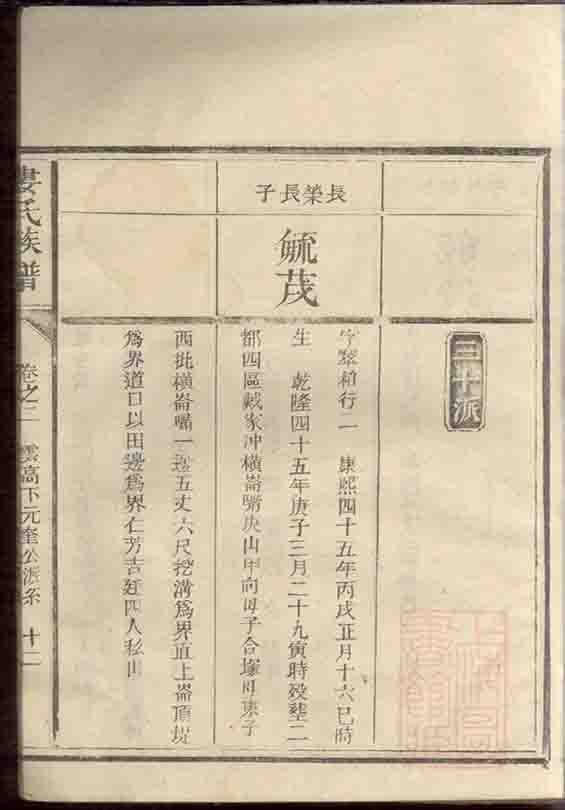 三十派
長榮長子
毓茂
字翠箱行二 康熙四十五年丙戌正月十六巳時
生 乾隆四十五年庚子三月二十九寅時歿塟二
都四區戴家冲橫崙嘴庚山甲向母子合塚母東子
西批橫崙嘴一邊五丈六尺挖溝爲界直上崙頂堘
爲界道口以田邊爲界仁芳吉廷四人私山
婁氏族譜
卷之二 雲高下元奎公派系 十二